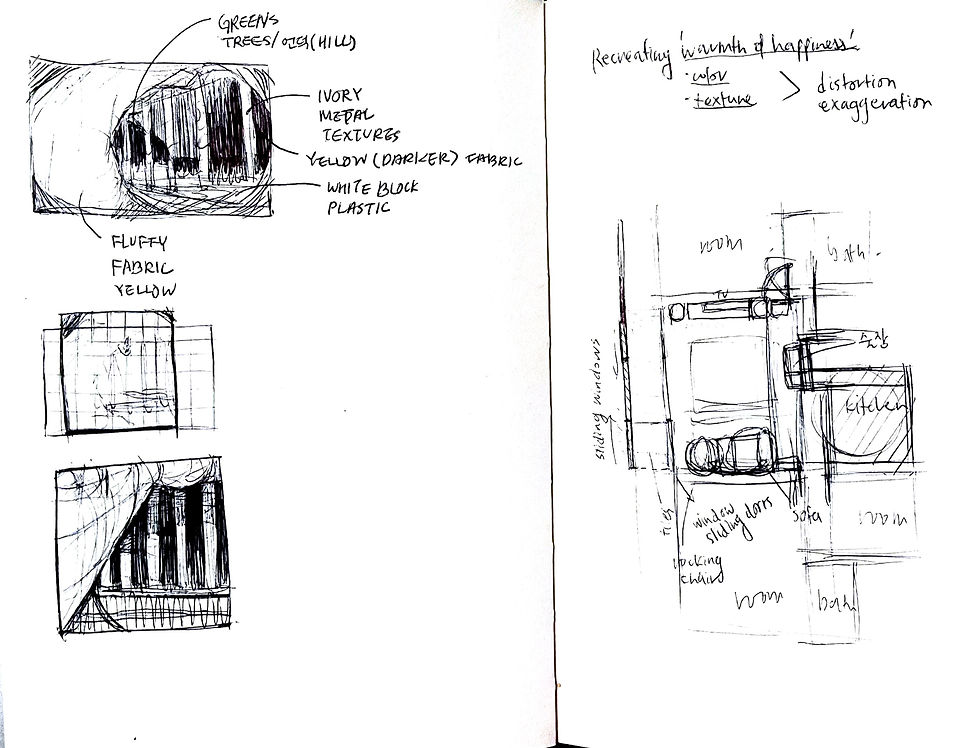 GREENS
TREES/언덕(HILL)
IVORY
METAL
TEXTURES
YELLOW (DARKER) FABRIC
WHITE BLOCK
PLASTIC
FLUFFY
FABRIC
YELLOW
Recreating 'warmth of happiness'
• color
• texture
distortion
exaggeration
room
bath
TV
sliding windows
kitchen
tiles
window
sliding doors
sofa
room
rocking
chair
room
bath